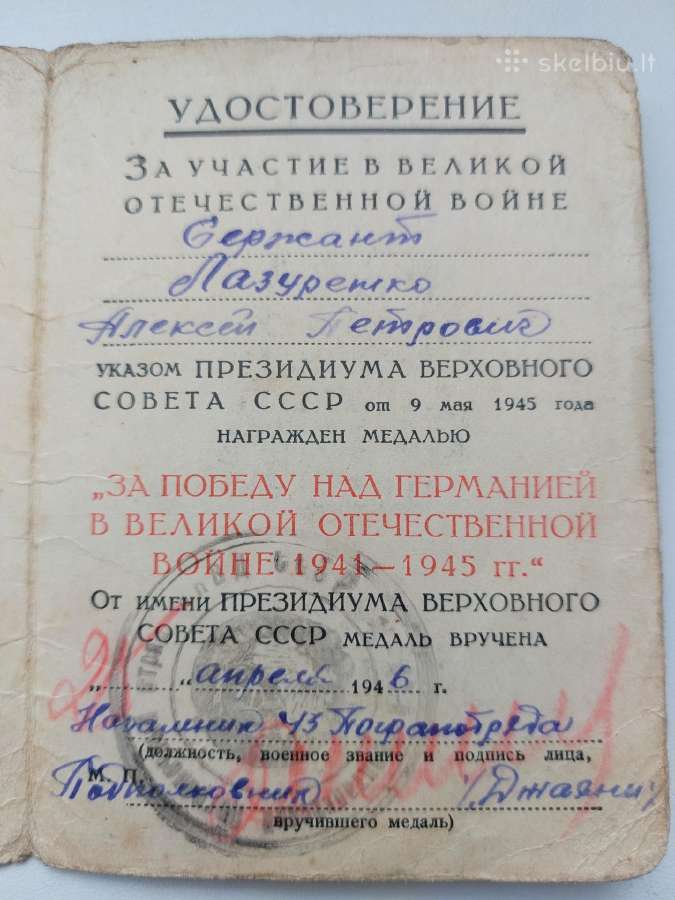 skelbiu.lt
УДОСТОВЕРЕНИЕ
ЗА УЧАСТИЕ В ВЕЛИКОЙ
ОТЕЧЕСТВЕННОЙ ВОЙНЕ
Сержант
Лазуренко
Алексей Петрович
УКАЗОМ ПРЕЗИДИУМА ВЕРХОВНОГО
СОВЕТА СССР от 9 мая 1945 года
НАГРАЖДЕН МЕДАЛЬЮ
„ЗА ПОБЕДУ НАД ГЕРМАНИЕЙ
В ВЕЛИКОЙ ОТЕЧЕСТВЕННОЙ
ВОЙНЕ 1941—1945 гг.“
ОТ ИМЕНИ ПРЕЗИДИУМА ВЕРХОВНОГО
СОВЕТА СССР МЕДАЛЬ ВРУЧЕНА
„ “ апреля 1946 г.
Начальник Погранотряда
(должность, военное звание и подпись лица,
М. П.
Подполковник
вручившего медаль)